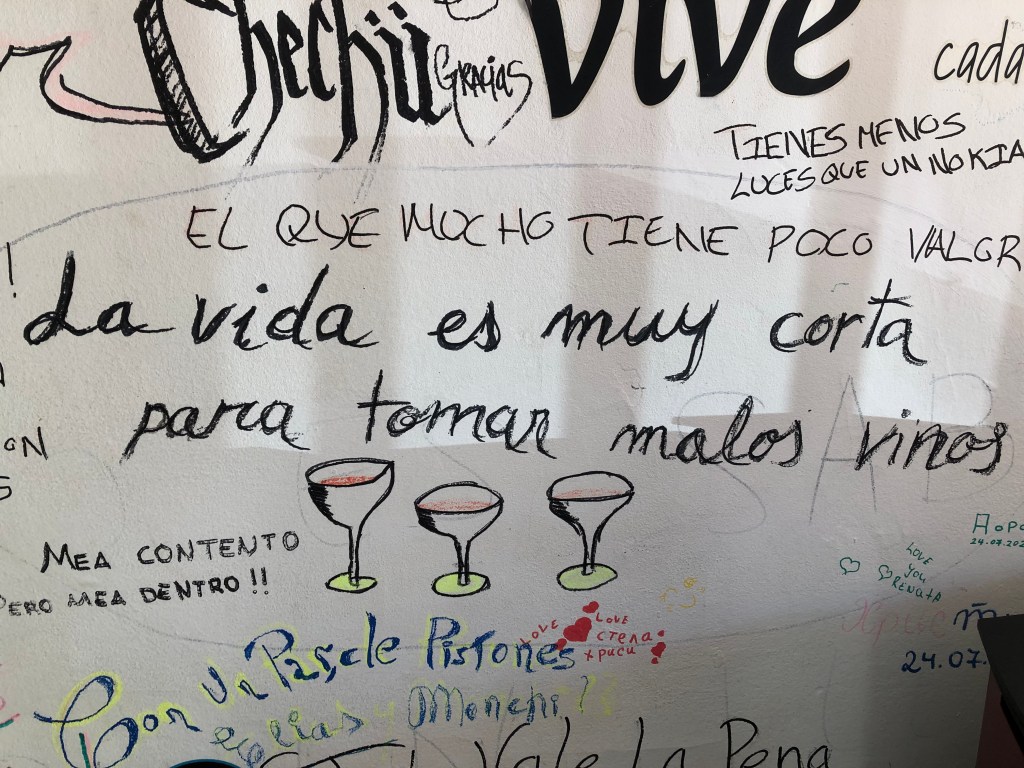 Chechü
Gracias
Vive
cada
TIENES MENOS
LUCES QUE UN NOKIA
EL QUE MUCHO TIENE POCO VALOR
La vida es muy corta
para tomar malos vinos
MEA CONTENTO
PERO MEA DENTRO!!
LOVE
YOU
RENATA
24.07.
LOVE
LOVE
стела
хриси
Con un Par de Pistones
Monchi
Vale La Pena